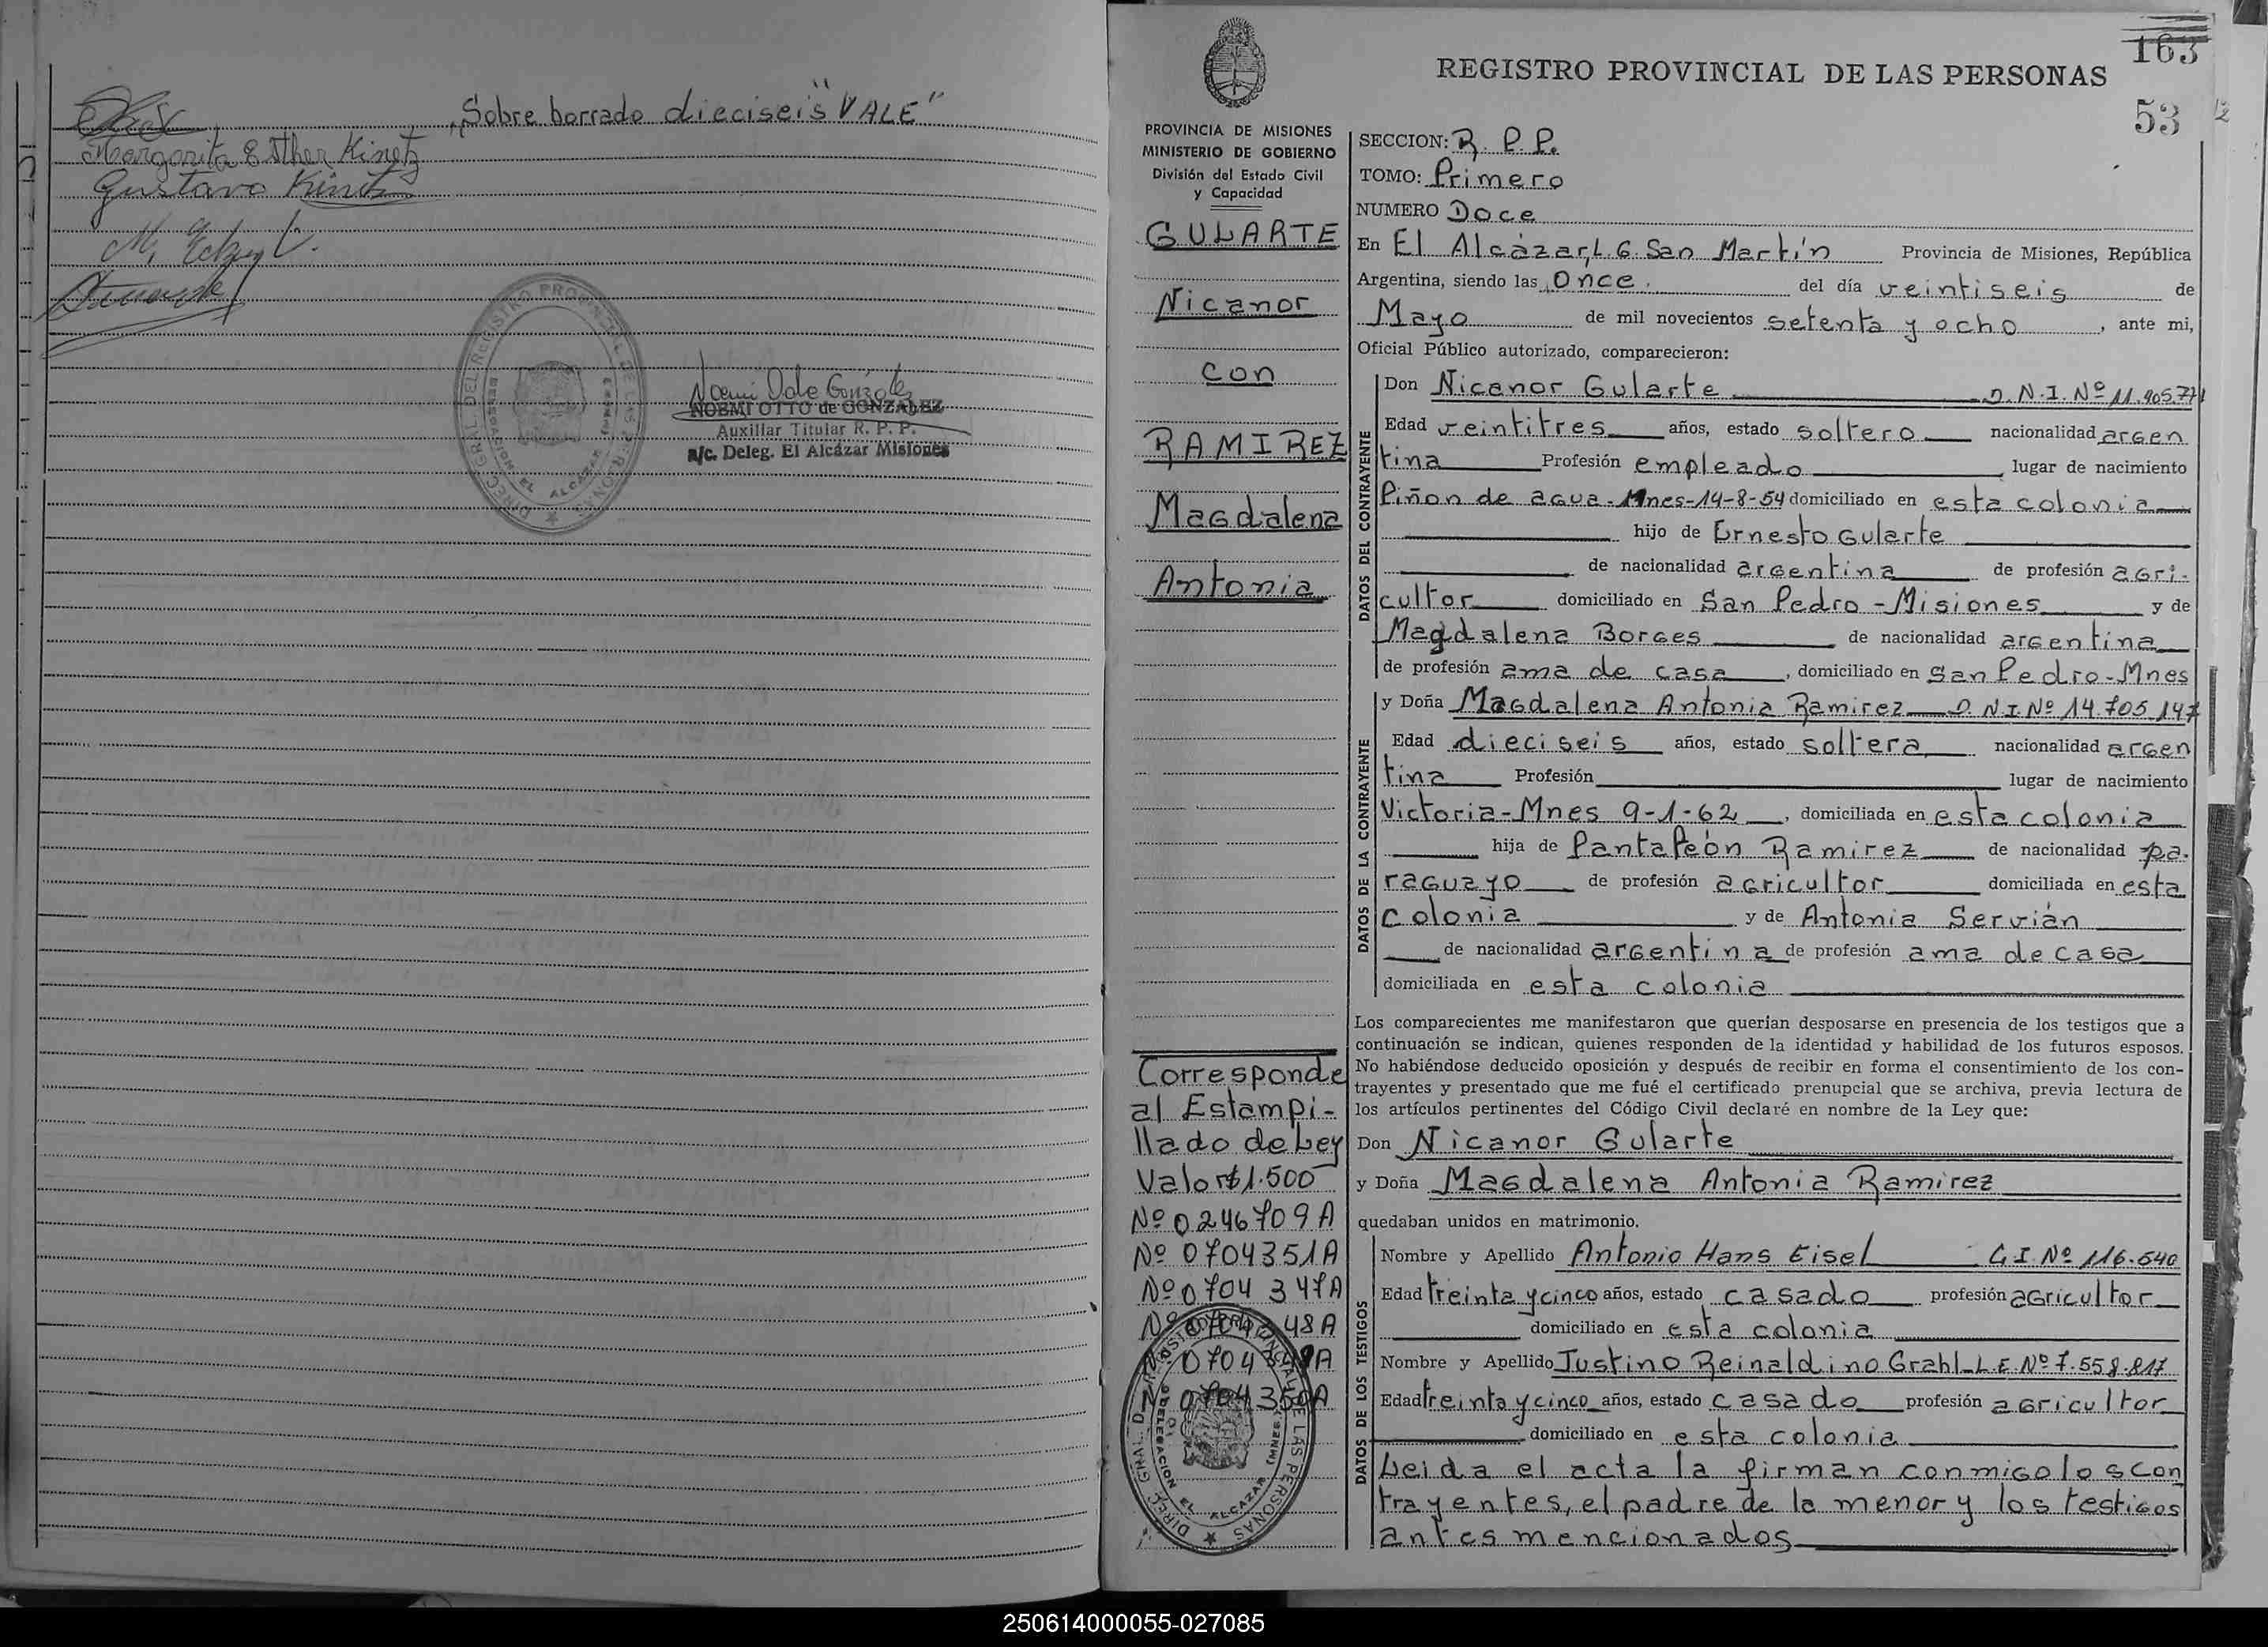 „Sobre borrado dieciseis" VALE"
Margarita Esther Kinetz
Gustavo
NOEMI OTTO de GONZALEZ
Auxiliar Titular R. P. P.
a/c. Deleg. El Alcázar Misiones
163
REGISTRO PROVINCIAL DE LAS PERSONAS
53
PROVINCIA DE MISIONES
MINISTERIO DE GOBIERNO
División del Estado Civil
y Capacidad
GULARTE
Nicanor
con
RAMIREZ
Magdalena
Antonia
Corresponde
al Estampi-
llado de Ley
Valor $1.500
Nº 0246709A
Nº 0704351A
Nº 0704 347A
SECCION: R. P. P.
TOMO: Primero
NUMERO Doce
En El Alcázar, L. G. San Martín Provincia de Misiones, República
Argentina, siendo las Once del día veintiseis de
Mayo de mil novecientos setenta y ocho, ante mi,
Oficial Público autorizado, comparecieron:
DATOS DEL CONTRAYENTE
Don Nicanor Gularte D. N. I. Nº 11.905.771
Edad veintitres años, estado soltero nacionalidad argen
tina Profesión empleado, lugar de nacimiento
Piñon de agua - Mnes-14-8-54 domiciliado en esta colonia
hijo de Ernesto Gularte
de nacionalidad argentina de profesión agri-
cultor domiciliado en San Pedro - Misiones y de
Magdalena Borges de nacionalidad argentina
de profesión ama de casa, domiciliado en San Pedro - Mnes
DATOS DE LA CONTRAYENTE
y Doña Magdalena Antonia Ramirez D. N. I. Nº 14.705.147
Edad dieciseis años, estado soltera nacionalidad argen
tina Profesión lugar de nacimiento
Victoria - Mnes 9-1-62, domiciliada en esta colonia
hija de Pantaleón Ramirez de nacionalidad pa-
raguayo de profesión agricultor domiciliada en esta
colonia y de Antonia Servián
de nacionalidad argentina de profesión ama de casa
domiciliada en esta colonia
Los comparecientes me manifestaron que querían desposarse en presencia de los testigos que a
continuación se indican, quienes responden de la identidad y habilidad de los futuros esposos.
No habiéndose deducido oposición y después de recibir en forma el consentimiento de los con-
trayentes y presentado que me fué el certificado prenupcial que se archiva, previa lectura de
los artículos pertinentes del Código Civil declaré en nombre de la Ley que:
Don Nicanor Gularte
y Doña Magdalena Antonia Ramirez
quedaban unidos en matrimonio.
DATOS DE LOS TESTIGOS
Nombre y Apellido Antonio Hans Eisel C. I. Nº 116.540
Edad treinta y cinco años, estado casado profesión agricultor
domiciliado en esta colonia
Nombre y Apellido Justino Reinaldino Grahl - L. E. Nº 7.558.817
Edad treinta y cinco años, estado casado profesión agricultor
domiciliado en esta colonia
Leida el acta la firman conmigo los con
trayentes, el padre de la menor y los testigos
antes mencionados
250614000055-027085